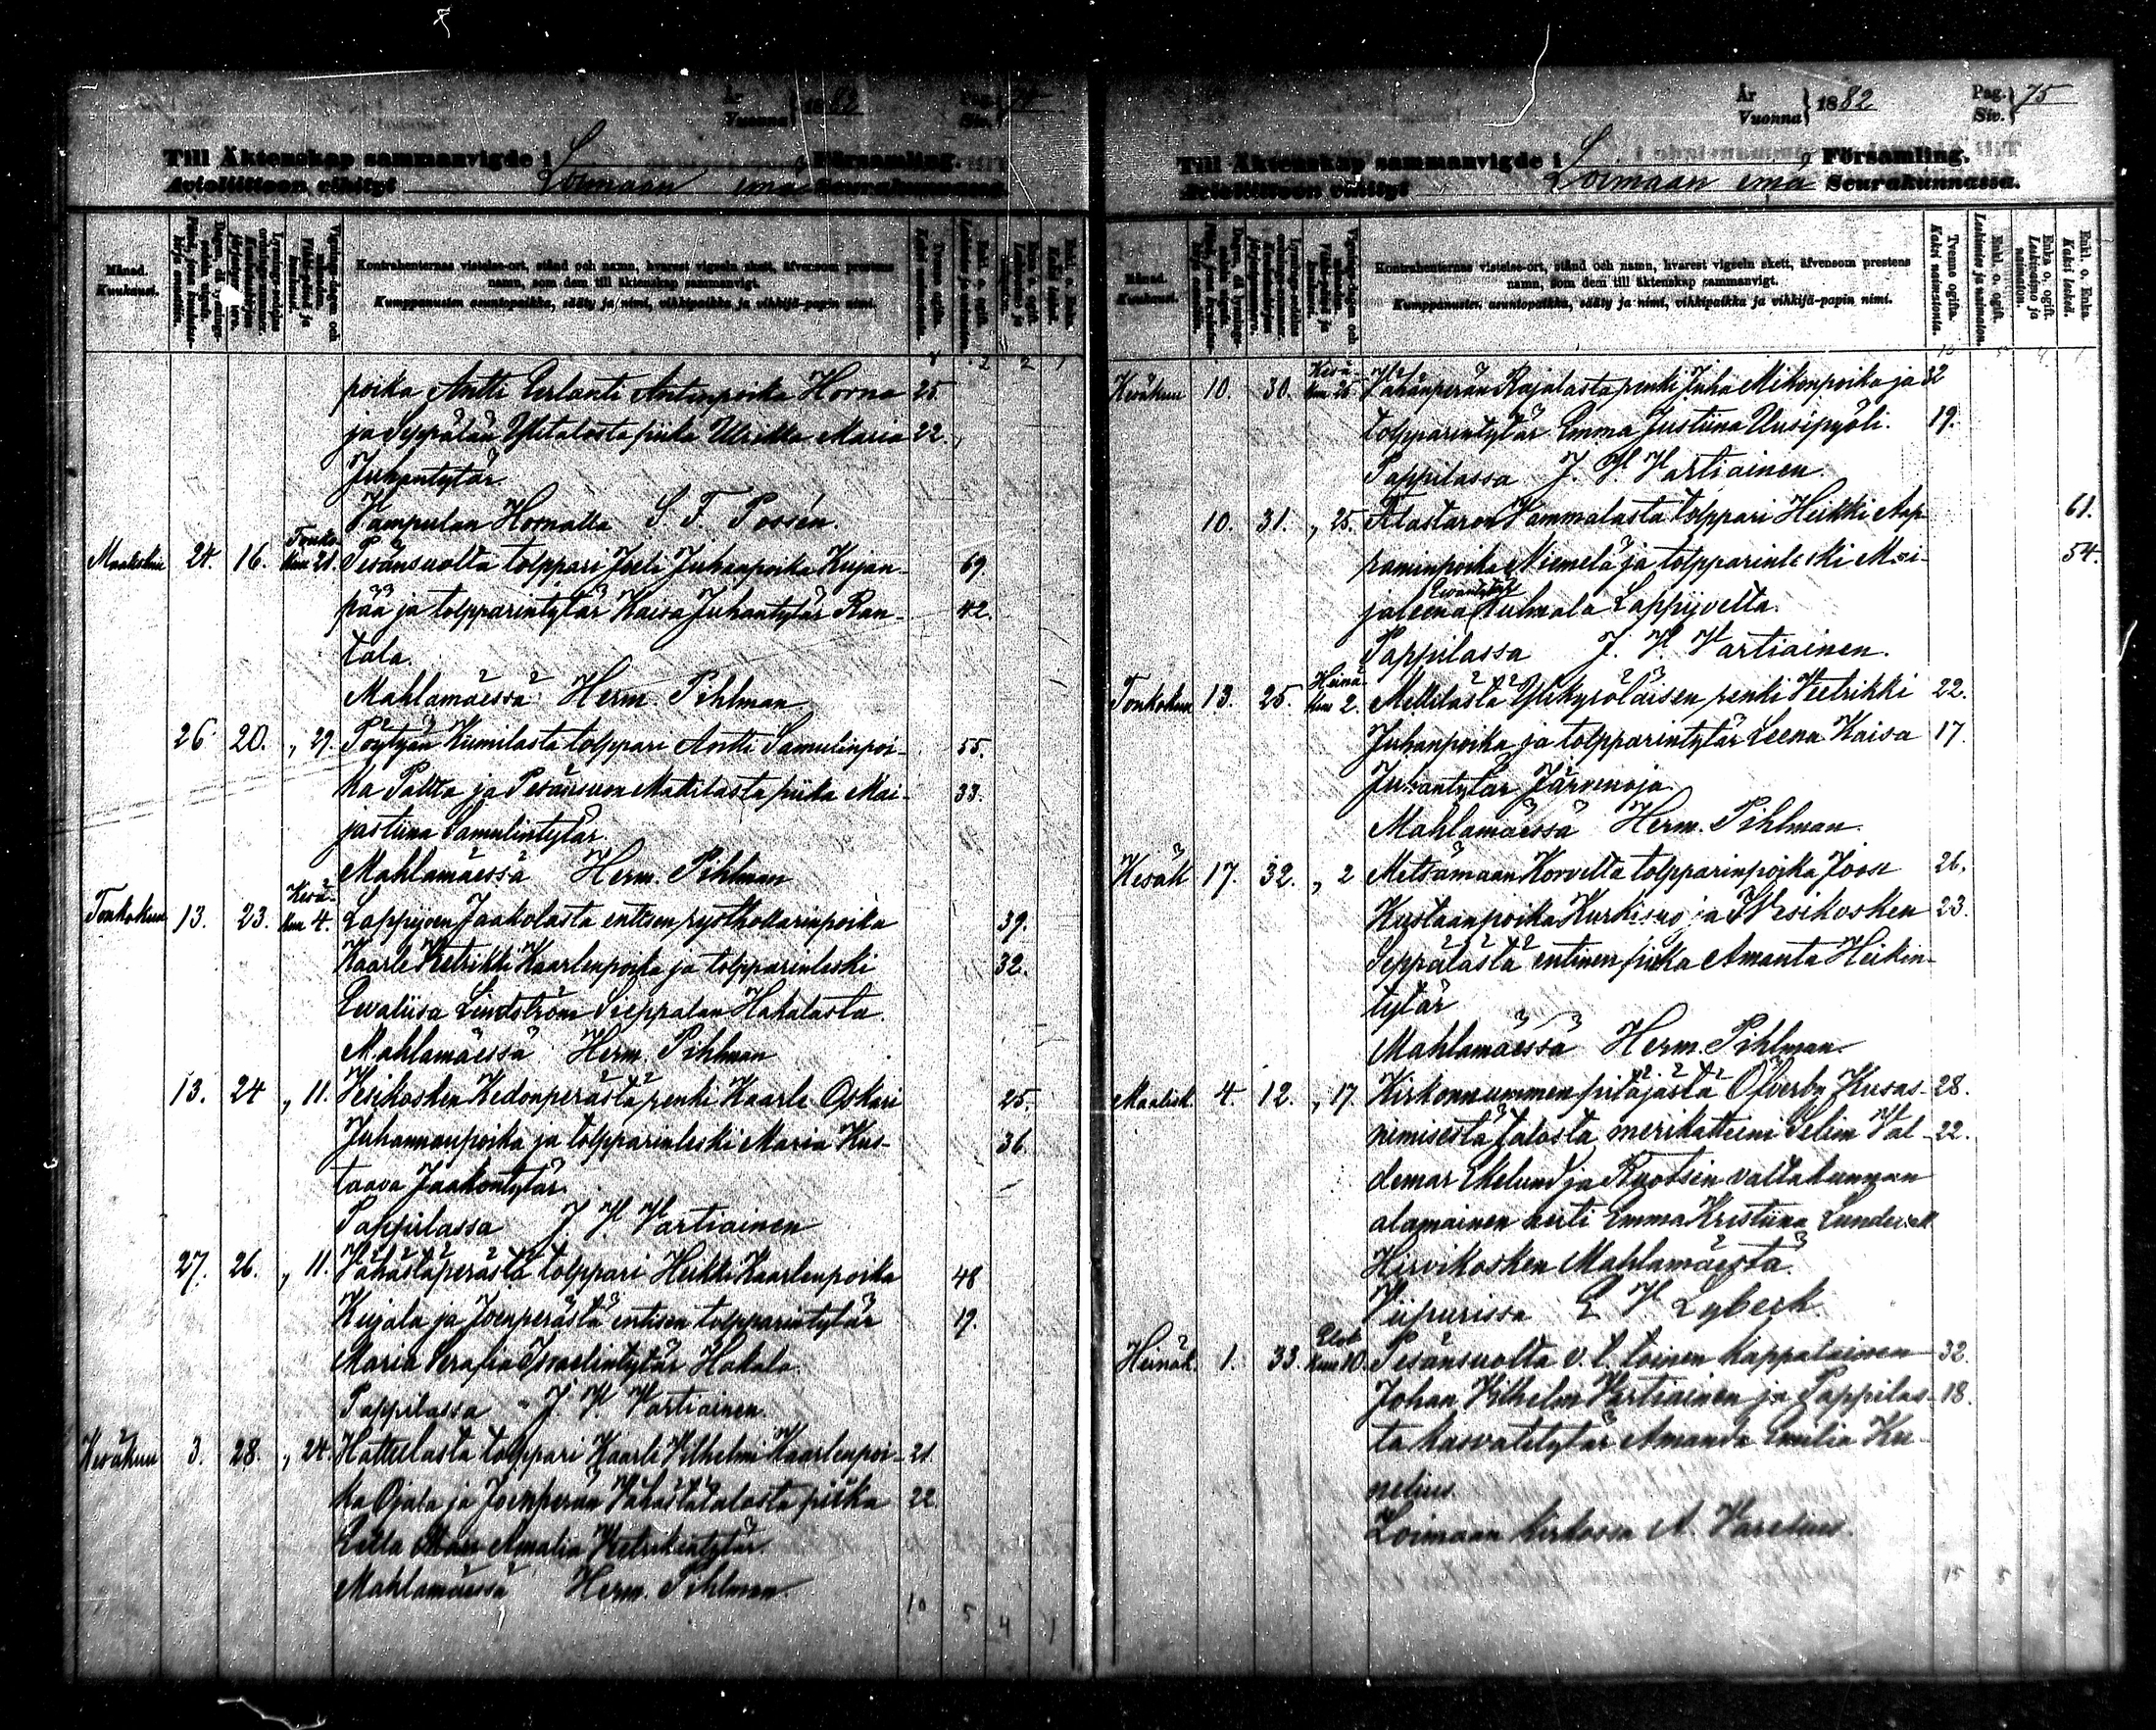 År Vuonna } 1882 Pag. Siv. } 74
Till Äktenskap sammanvigde i Församling.
Avioliittoon vihityt Loimaan emä Seurakunnassa.
Månad. Kuukausi.
Kontrahenternas vistelse-ort, stånd och namn, hvarest vigseln skett, äfvensom prestens
namn, som dem till äktenskap sammanvigt.
Kumppanusten asuntopaikka, sääty ja nimi, vihkipaikka ja vihkijä-papin nimi.
poika Antti Erlanti Antinpoika Horna 25.
ja Seppälän Ylitalosta piika Ulriikka Maria 22.
Juhantytär
Vampulan Hornalla S. F. Possén.
Maalisku 24. 16. Toukokuu 21. Pesänsuolta torppari Joeli Juhanpoika Kujan- 69.
pää ja torpparintytär Kaisa Juhantytär Ran- 42.
tala.
Mahlamäessä Herm. Pihlman
26 20. „ 29. Pöytyän Kumilasta torppari Antti Samulinpoi- 55.
ka Paltta ja Pesänsuon Mattilasta piika Mai- 33.
jastiina Samulintytär.
Mahlamäessä Herm. Pihlman
Toukokuu 13. 23. Kesäkuu 4. Lappijoen Jaakolasta entisen rusthollarinpoika 39.
Kaarle Vetrikki Kaarlenpoika ja torpparinleski 32.
Evaliisa Lindström Sieppalan Hakalasta.
Mahlamäessä Herm. Pihlman
13. 24 „ 11. Vesikosken Kedonperästä renki Kaarle Oskari 25.
Juhannanpoika ja torpparinleski Maria Kus- 36
taava Jaakontytär.
Pappilassa J. V. Vartiainen
27. 26. „ 11. Vähästäperästä torppari Heikki Kaarlenpoika 48
Kujala ja Joenperästä entisen torpparintytär 19.
Maria Serafia Israelintytär Hakala.
Pappilassa J. V. Vartiainen.
Kesäkuu 3. 28. „ 24. Hattulasta torppari Kaarle Vilhelmi Kaarlenpoi- 21
ka Ojala ja Joenperän Vähästätalosta piika 22.
Amalia Vetrikintytär.
Mahlamäessä Herm. Pihlman
10 5 4 1
År Vuonna } 1882 Pag. Siv. } 75
Till Äktenskap sammanvigde i Församling.
Avioliittoon vihityt Loimaan emä Seurakunnassa.
Månad. Kuukausi.
Kontrahenternas vistelse-ort, stånd och namn, hvarest vigseln skett, äfvensom prestens
namn, som dem till äktenskap sammanvigt.
Kumppanusten asuntopaikka, sääty ja nimi, vihkipaikka ja vihkijä-papin nimi.
Kesäkuu 10. 30. Kesäkuu 25. Vähänperän Rajalasta renki Juha Mikonpoika ja 32
torpparintytär Emma Justiina Uusipyöli. 19.
Pappilassa J. V. Vartiainen.
10. 31. „ 25. Alastaron Vammalasta torppari Heikki Aap- 61.
raminpoika Niemelä ja torpparinleski Mai- 54.
jaleena Eevantytär Tuhmala Lappijoelta.
Pappilassa J. V. Vartiainen.
Toukokuu 13. 25. Heinäkuu 2. Mellilästä Ylikyröläisen renki Vietrikki 22.
Juhanpoika ja torpparintytär Leena Kaisa 17.
Juhantytär Järvenoja.
Mahlamäessä Herm. Pihlman.
Kesäk 17. 32. „ 2 Metsämaan Korvelta torpparinpoika Joose 26.
Kustaanpoika Kurkisuo ja Vesikosken 23.
Seppälästä entinen piika Amanta Heikin-
tytär
Mahlamäessä Herm. Pihlman.
Maalisk. 4. 12. „ 17 Kirkonnummen pitäjästä Öfverby Kusas- 28.
nimisestä talosta merikatteini Selim Val- 22.
demar Ekelund ja Ruotsin valtakunnan
alamainen neiti Emma Kristiina Lundevall
Hirvikosken Mahlamäestä.
Viipurissa E. V. Lybeck.
Heinäk. 1. 33. Elokuu 10. Pesänsuolta v. t. toinen kappalainen 32.
Johan Vilhelm Vartiainen ja Pappilas- 18.
ta kasvatitytär Amanda Emilia Ku-
nelius.
Loimaan kirkossa A. Varelius.
15 5 4 1